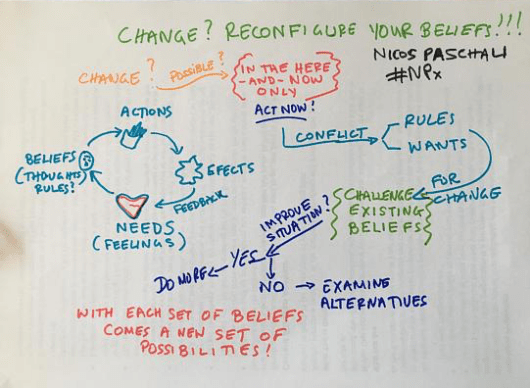 CHANGE? RECONFIGURE YOUR BELIEFS!!!
NICOS PASCHALI
#NPx
CHANGE?
POSSIBLE?
IN THE HERE
-AND-NOW
ONLY
ACT NOW!
CONFLICT
RULES
WANTS
FOR
CHANGE
ACTIONS
BELIEFS
(THOUGHTS
RULES?)
EFECTS
FEEDBACK
NEEDS
(FEELINGS)
CHALLENGE
EXISTING
BELIEFS
IMPROVE
SITUATION?
YES
DO MORE
NO
EXAMINE
ALTERNATIVES
WITH EACH SET OF BELIEFS
COMES A NEW SET OF
POSSIBILITIES!